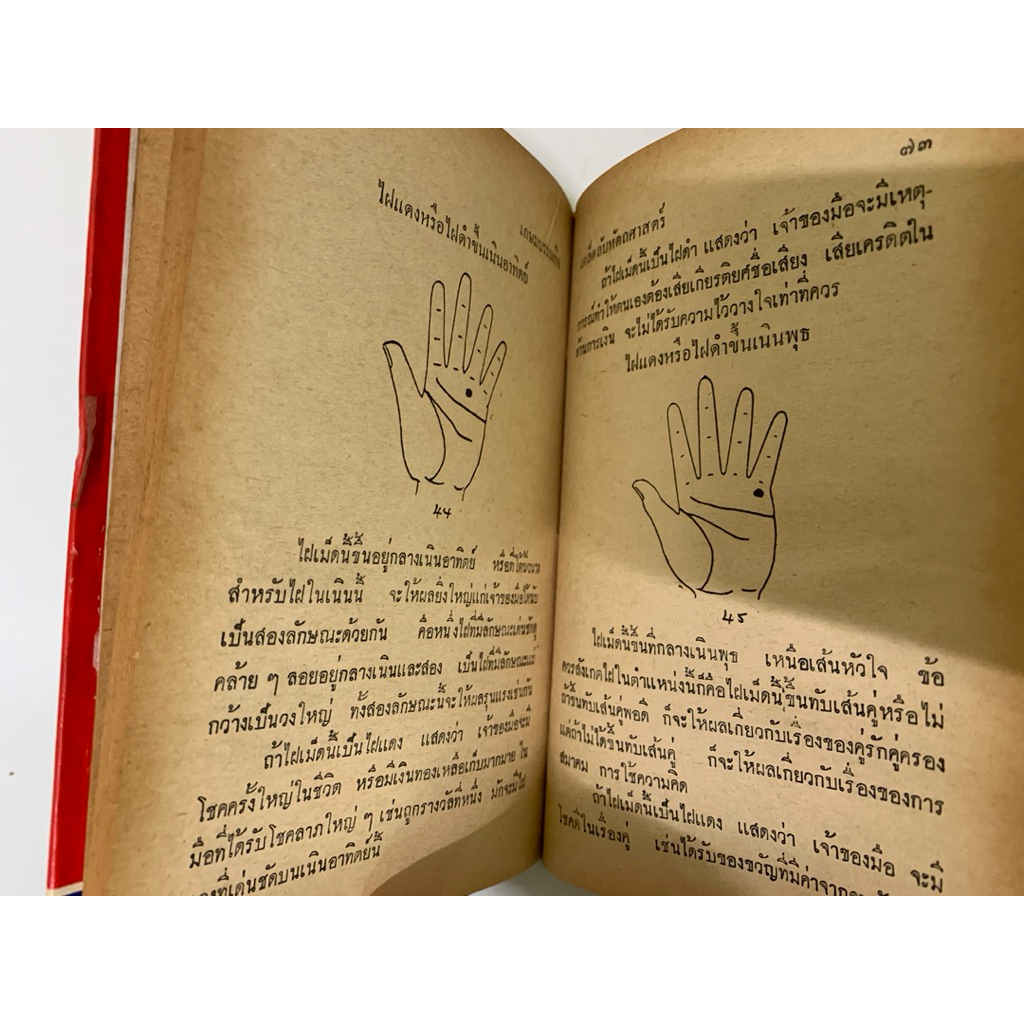 ไฝแดงหรือไฝดำขึ้นเนินอาทิตย์
44
ไฝเม็ดนี้ขึ้นอยู่กลางเนินอาทิตย์ หรือที่ใต้นิ้วนาง
สำหรับไฝในเนินนี้ จะให้ผลยิ่งใหญ่แก่เจ้าของมือได้นับ
เป็นสองลักษณะด้วยกัน คือหนึ่งไฝที่มีลักษณะเด่นชัดดู
คล้าย ๆ ลอยอยู่กลางเนินและสอง เป็นไฝที่มีลักษณะแผ่
กว้างเป็นวงใหญ่ ทั้งสองลักษณะนี้จะให้ผลรุนแรงเช่นกัน
ถ้าไฝเม็ดนี้เป็นไฝแดง แสดงว่า เจ้าของมือจะมี
โชคครั้งใหญ่ในชีวิต หรือมีเงินทองเหลือเก็บมากมาย ใน
มือที่ได้รับโชคลาภใหญ่ ๆ เช่นถูกรางวัลที่หนึ่ง มักจะมีไฝ
ที่เด่นชัดบนเนินอาทิตย์นี้
๗๓
เคล็ดลับหัตถศาสตร์
ถ้าไฝเม็ดนี้เป็นไฝดำ แสดงว่า เจ้าของมือจะมีเหตุ-
การณ์ทำให้ตนเองต้องเสียเกียรติยศชื่อเสียง เสียเครดิตใน
ด้านการเงิน จะไม่ได้รับความไว้วางใจเท่าที่ควร
ไฝแดงหรือไฝดำขึ้นเนินพุธ
45
ไฝเม็ดนี้ขึ้นที่กลางเนินพุธ เหนือเส้นหัวใจ ข้อ
ควรสังเกตไฝในตำแหน่งนี้ก็คือไฝเม็ดนี้ขึ้นทับเส้นคู่หรือไม่
ถ้าขึ้นทับเส้นคู่พอดี ก็จะให้ผลเกี่ยวกับเรื่องของคู่รักคู่ครอง
แต่ถ้าไม่ได้ขึ้นทับเส้นคู่ ก็จะให้ผลเกี่ยวกับเรื่องของการ
สมาคม การใช้ความคิด
ถ้าไฝเม็ดนี้เป็นไฝแดง แสดงว่า เจ้าของมือ จะมี
โชคดีในเรื่องคู่ เช่นได้รับของขวัญที่มีค่าจาก